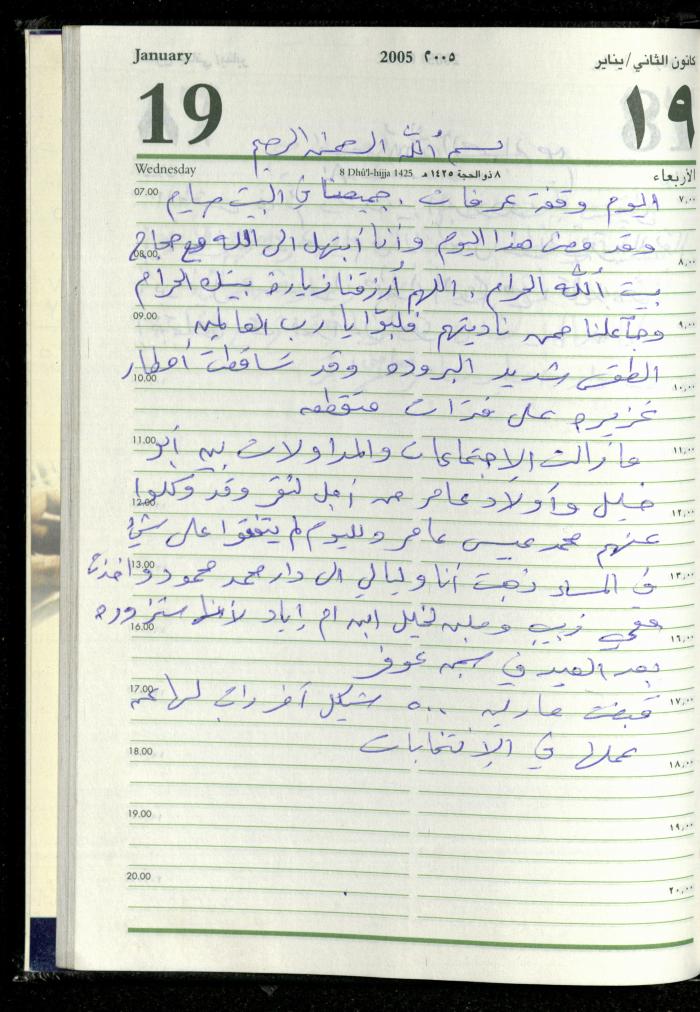 January 2005 ٢٠٠٥ كانون الثاني/يناير
19 ١٩
بسم الله الرحمن الرحيم
Wednesday 8 Dhû'l-hijja 1425 ٨ ذو الحجة ١٤٢٥ هـ الأربعاء
07.00 اليوم وقفة عرفات . جميعنا في البيت صيام ٧,٠٠
08.00 وقد مضى هذا اليوم وأنا أبتهل الى الله مع حجاج ٨,٠٠
بيت الله الحرام . اللهم أرزقنا زيارة بيتك الحرام
09.00 وجآعلنا ممن ناديتهم فلبوّا يا رب العالمين ٩,٠٠
10.00 الطقس شديد البروده وقد تساقطت أمطار ١٠,٠٠
غزيره على فترات متقطعه
11.00 ما زالت الإجتماعات والمداولات بين أبو ١١,٠٠
12.00 خليل وأولاد عامر من أجل لنقر وقد وكلوا ١٢,٠٠
عنهم محمد عيسى عامر ولليوم لم يتفقوا على شيئ
13.00 في المساء ذهبت أنا وليالي الى دار محمد محمود واخذت ١٣,٠٠
16.00 معي زبيب وملبن لخليل ابن ام إياد لأننا ستزوره ١٦,٠٠
بعد العيد في سجن عوفر
17.00 قبضت مارلين ٥٠٠ شيكل أخرى لها عن ١٧,٠٠
18.00 عملها في الإنتخابات ١٨,٠٠
19.00 ١٩,٠٠
20.00 ٢٠,٠٠